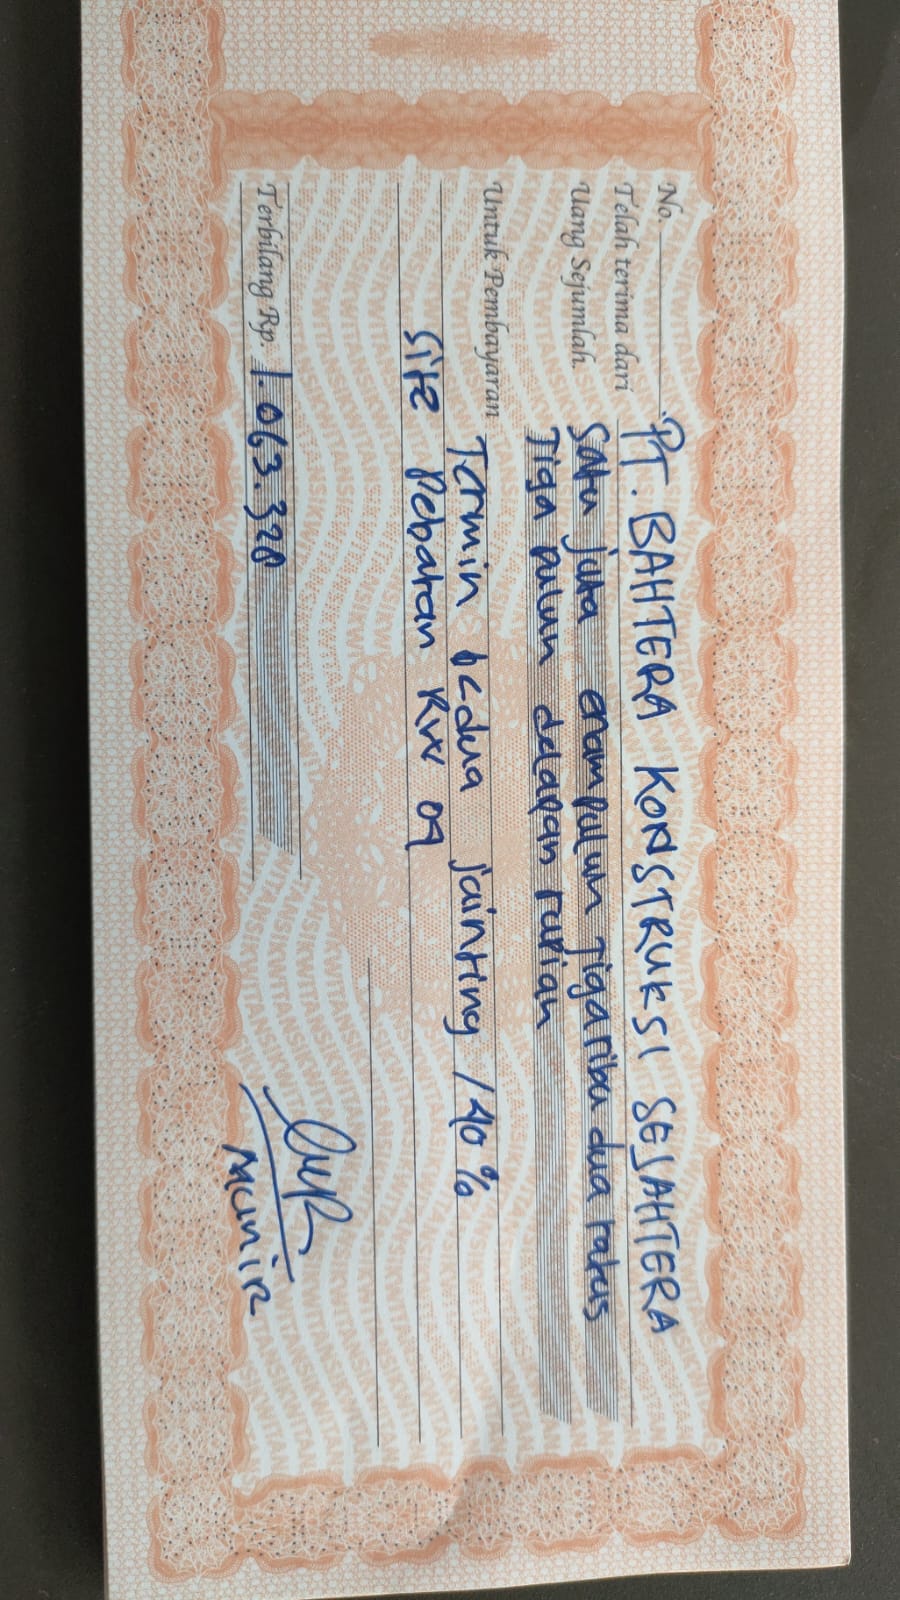 No.
Telah terima dari PT. BAHTERA KONSTRUKSI SEJAHTERA
Uang Sejumlah Satu juta enam puluh Tiga ribu dua ratus
Tiga puluh delapan rupiah
Untuk Pembayaran Termin kedua jointing / 40 %
Site Pebatan RW 09
Terbilang Rp. 1.063.
Munir